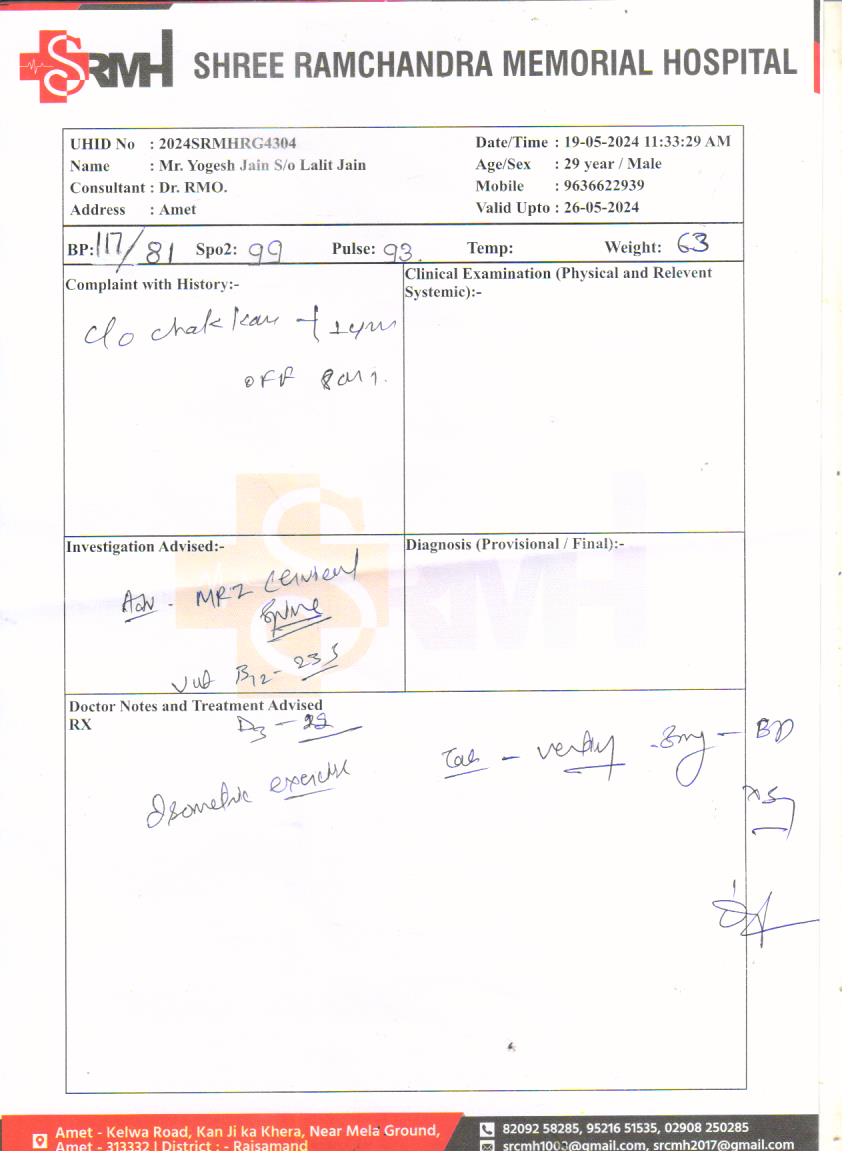 SRMH SHREE RAMCHANDRA MEMORIAL HOSPITAL
UHID No : 2024SRMHRG4304
Date/Time : 19-05-2024 11:33:29 AM
Name : Mr. Yogesh Jain S/o Lalit Jain
Age/Sex : 29 year / Male
Consultant : Dr. RMO.
Mobile : 9636622939
Address : Amet
Valid Upto : 26-05-2024
BP: 117/81 Spo2: 99 Pulse: 93. Temp: Weight: 63
Complaint with History:-
c/o chakkar
OFF
Clinical Examination (Physical and Relevent
Systemic):-
Investigation Advised:-
Adv - MRI Cervical
Spine
Vit B12 - 235
Diagnosis (Provisional / Final):-
Doctor Notes and Treatment Advised
RX
D3 -
Isometric exercise
Tab - BD
Amet - Kelwa Road, Kan Ji ka Khera, Near Mela Ground,
Amet - 313332 | District : - Rajsamand
82092 58285, 95216 51535, 02908 250285
srcmh1003@gmail.com, srcmh2017@gmail.com